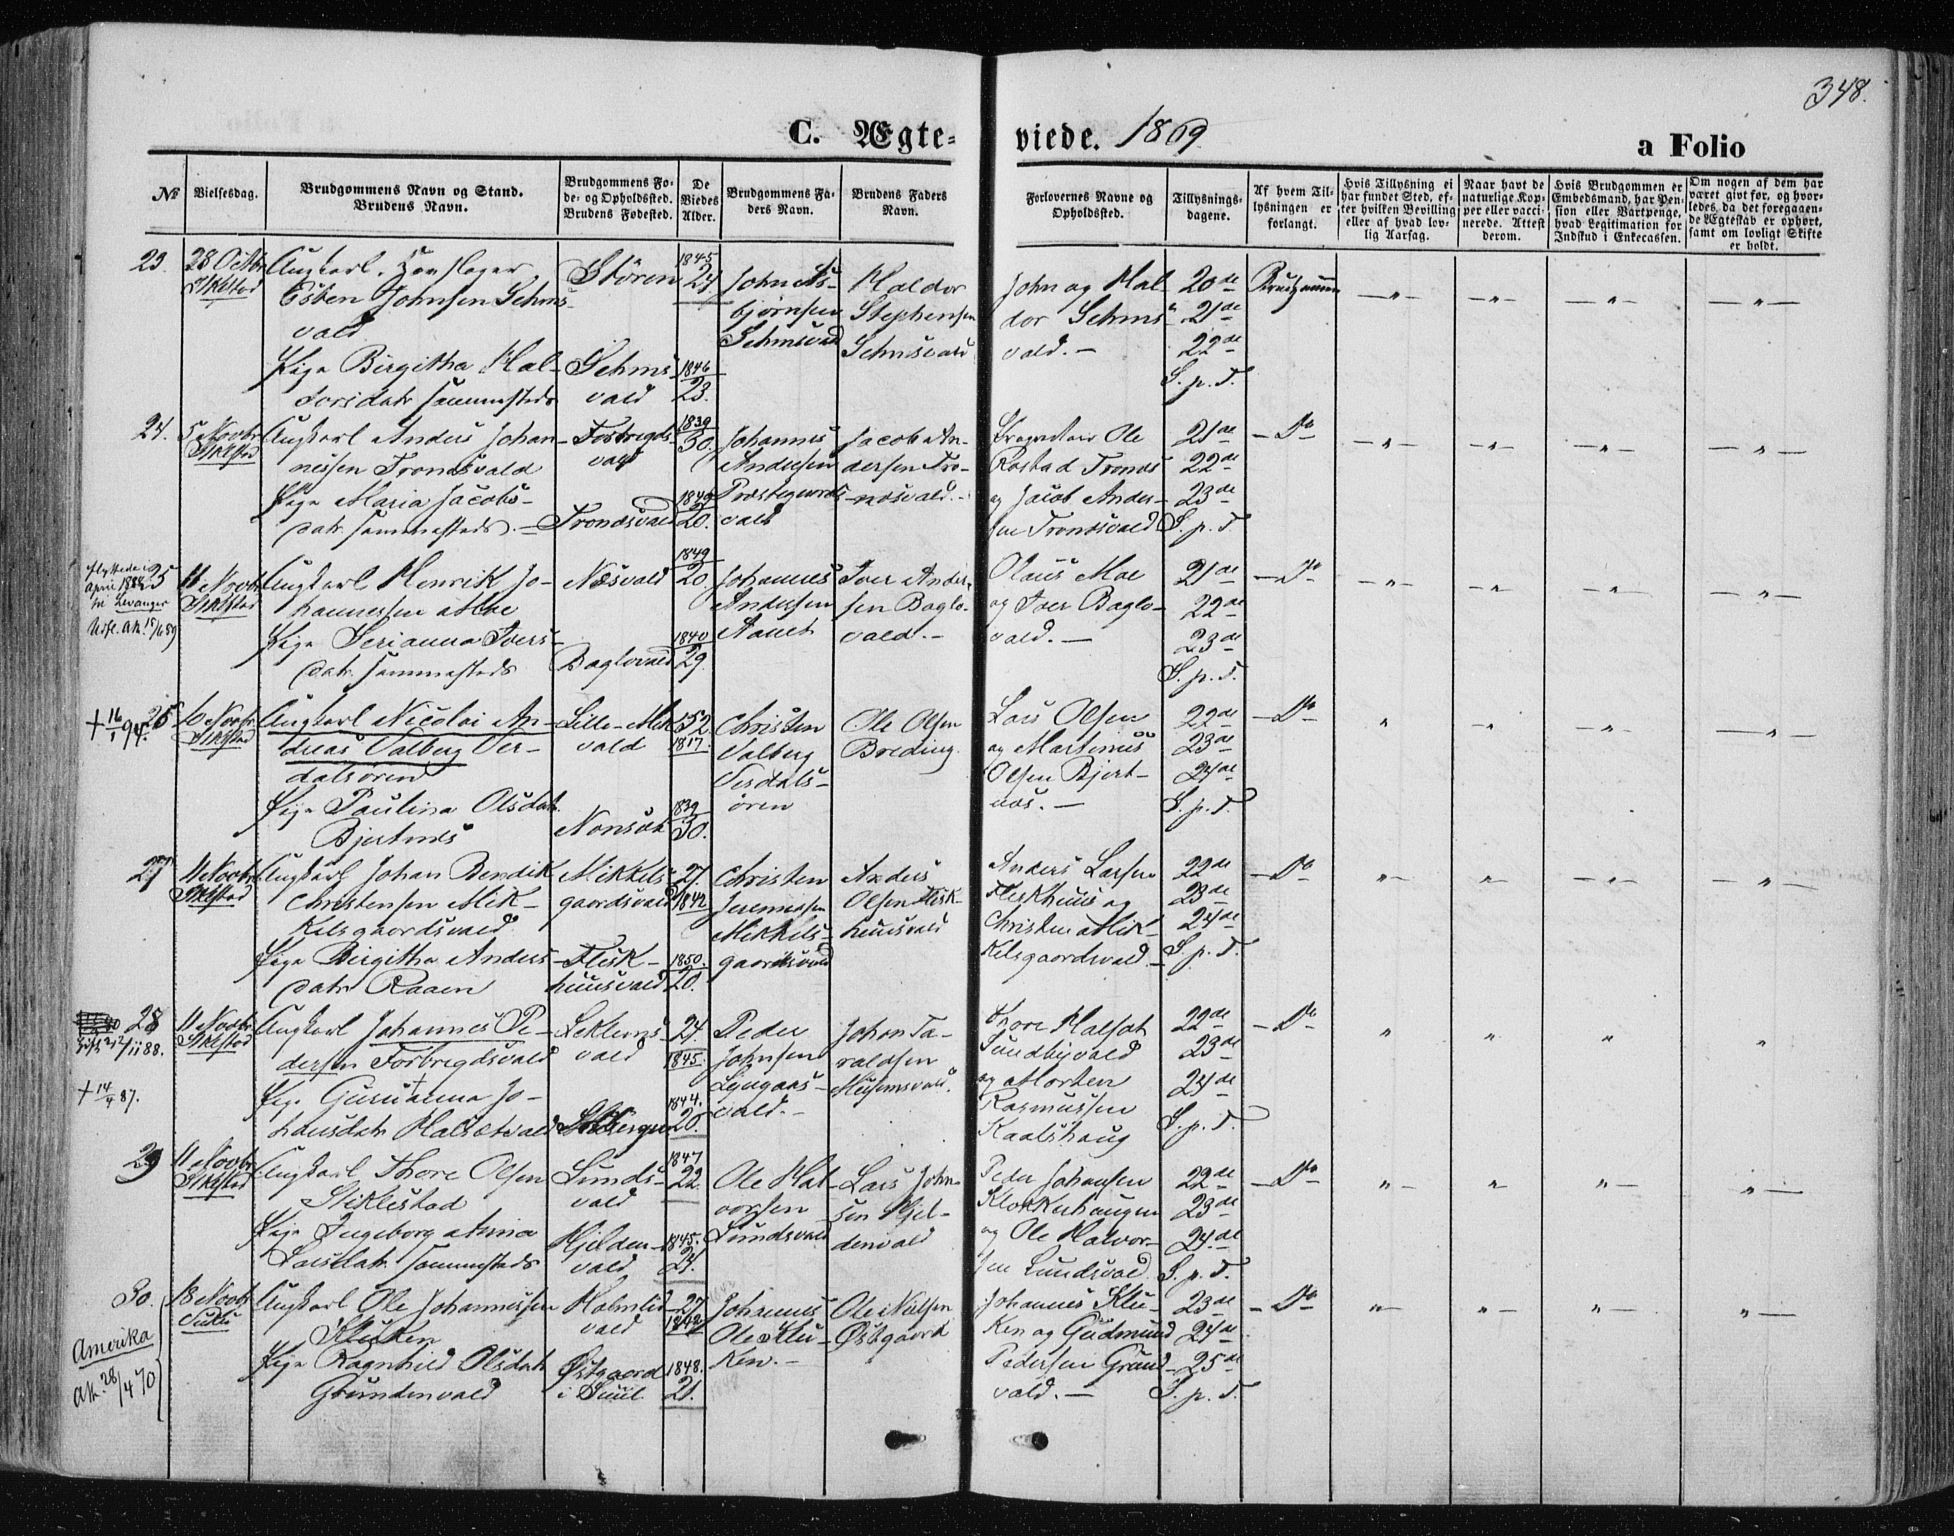 348.
C. Ægte-viede. 1869
a Folio
№
Vielsesdag.
Brudgommens Navn og Stand.
Brudens Navn.
Brudgommens Fø-
de- og Opholdssted.
Brudens Fødested.
De
Viedes
Alder.
Brudgommens Fa-
ders Navn.
Brudens Faders
Navn.
Forlovernes Navne og
Opholdssted.
Tillysnings-
dagene.
Af hvem Til-
lysningen er
forlangt.
Hvis Tillysning ei
har fundet Sted, ef-
ter hvilken Bevilling
eller af hvad lov-
lig Aarsag.
Naar havt de
naturlige Kop-
per eller vacci-
nerede. Attest
derom.
Hvis Brudgommen er
Embedsmand, har Pen-
sion eller Vartpenge,
hvad Legitimation for
Indskud i Enkecassen.
Om nogen af dem har
været givt før, og hvor-
ledes, da det foregaaen-
de Ægteskab er ophørt,
samt om lovligt Skifte
er holdt.
23.
28 Octbr
Stiklestad
Ungkarl
Esben Johnsen Sehms-
vald
Pige Birgitha Hal-
dorsdatr sammesteds
Støren
Sehms-
vald
1845
24
1846
23.
John As-
bjørnsen
Sehmsvald
Haldor
Stephensen
Sehmsvald
John og Hal-
dor Sehms-
vald. —
20de
21de
22de
S. p. T.
Brudgommen
24.
5 Novbr
Stiklestad
Ungkarl Anders Johan-
nessen Trondsvald
Pige Maria Jacobs-
datr sammesteds. —
Forbregds-
vald
Trondsvald
1839
30.
1849
20.
Johannes
Andersen
Præstegaards-
vald
Jacob An-
dersen Tro-
ndsvald. —
Ole
Rostad Tronds
og Jacob Ander-
sen Trondsvald
21de
22de
23de
S. p. T.
Do
flyttede i
April 1884
til Levanger
25
11 Novbr
Stiklestad
Ungkarl Henrik Jo-
hannessen Moe
Pige Serianna Ivers-
datr sammesteds
Næsvald
Baglovald
1849
20
1840
29.
Johannes
Andersen
Iver Ander-
sen Baglo-
vald. —
Olaus Moe
og Iver Baglo-
vald. —
21de
22de
23de
S. p. T.
Do
+ 16/1 94.
26
10 Novbr
Stiklestad
Ungkarl Nicolai An-
dreas Valberg Ver-
dalsøren
Pige Paulina Olsdatr
Bjertnes
Lille-Moe
vald
52
1817.
1839
30.
Christen
Valberg
Verdals-
øren
Ole Olsen
Breding.
Lars Olsen
og Martinus
Olsen Bjert-
næs. —
22de
23de
24de
S. p. T.
Do
27
11 Novbr
Stiklestad
Ungkarl Johan Bendik
Christensen Mik-
kelsgaardsvald
Pige Birgitha Anders-
datr Raaen
Mikkels-
gaardsvald
Fleskhuusvald
27.
1842
1850.
20.
Christen
Jeremiasen
Mikkels-
gaardsvald
Anders
Olsen Flesk-
huusvald
Anders Larsen
Fleskhuus og
Christen Mik-
kelsgaardsvald —
22de
23de
24de
S. p. T.
Do
28
+ 14/4 87.
11 Novbr
Stiklestad
Ungkarl Johannes Pe-
dersen Forbregdsvald
Pige Guruanna Jo-
hansdatr Halsetvald
Leklems-
vald
24.
1845.
1844.
Peder
Johnsen
Lyngaas-
vald. —
Johan Ta-
raldsen
Thore Halset
Sundbyvald
og Morten
Rasmussen
Kaalshaug
22de
23de
24de
S. p. T.
Do
29
11 Novbr
Stiklestad
Ungkarl Thore Olsen
Stiklestad
Pige Ingeborg Anna
Larsdatr sammesteds
Lunds-
vald
Hjelden-
vald
1847
22.
1845.
24.
Ole Hal-
vorsen
Lundsvald
Lars John-
sen Hjel-
denvald
Peder Johansen
Klokkerhaugen
og Ole Halvor-
sen Lundsvald
22de
23de
24de
S. p. T.
Do
30.
Amerika
28/4 70
18 Novbr
Suul
Ungkarl Ole Johannessen
Kluken
Pige Ragnhild Olsdatr
Grundenvald
Holmlid-
vald
Østgaard
i Suul
27
1842
1848.
21.
Johannes
Ole Klu-
ken. —
Ole Nielsen
Østgaard
Johannes Klu-
ken og Gudmund
Pedersen Grund-
vald. —
23de
24de
25de
S. p. T.
Do